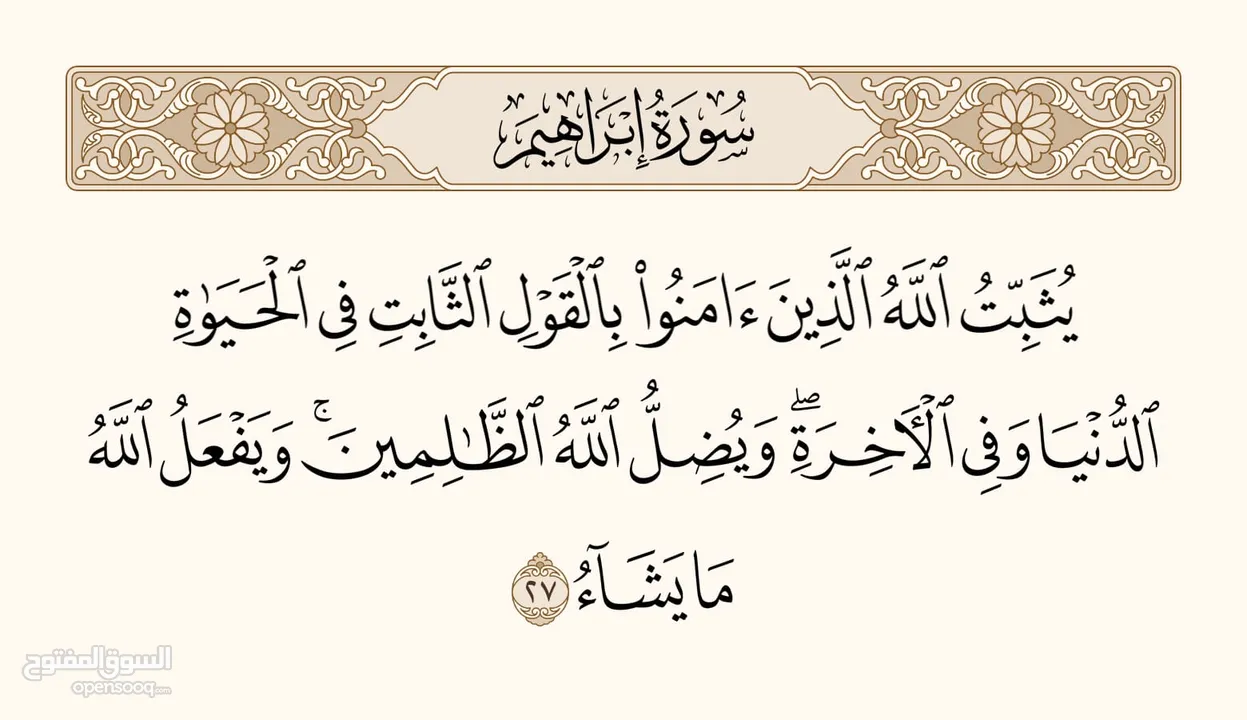 سُورَةُ إِبْرَاهِيمَ
يُثَبِّتُ ٱللَّهُ ٱلَّذِينَ ءَامَنُوا۟ بِٱلْقَوْلِ ٱلثَّابِتِ فِى ٱلْحَيَوٰةِ
ٱلدُّنْيَا وَفِى ٱلْـَٔاخِرَةِ ۖ وَيُضِلُّ ٱللَّهُ ٱلظَّـٰلِمِينَ ۚ وَيَفْعَلُ ٱللَّهُ
مَا يَشَآءُ ٢٧
السوق المفتوح
opensooq.com